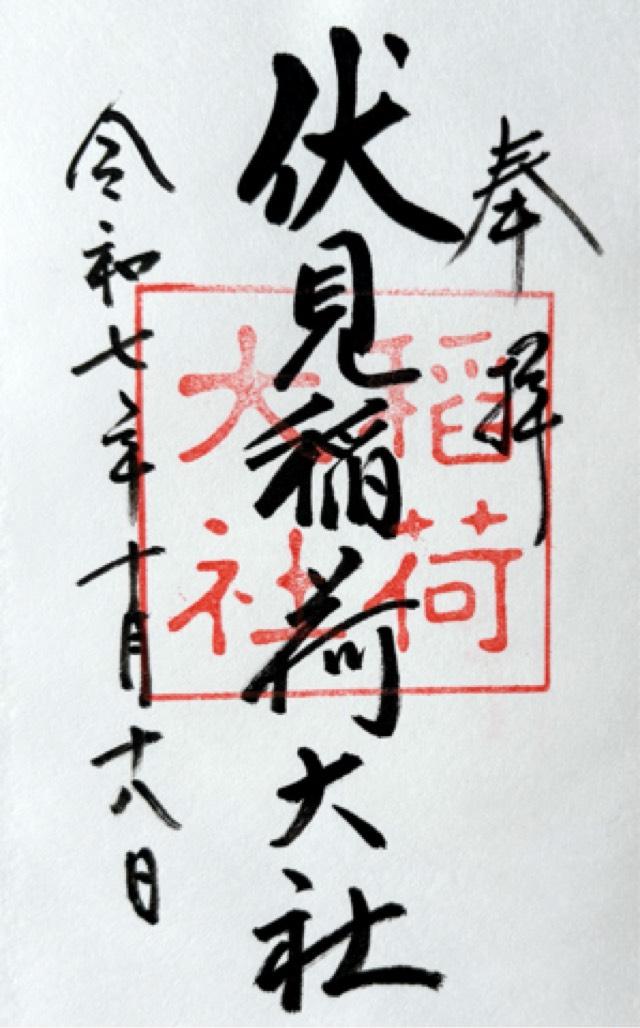 奉拝
伏見稲荷大社
稲荷
大社
令和七年十月十八日